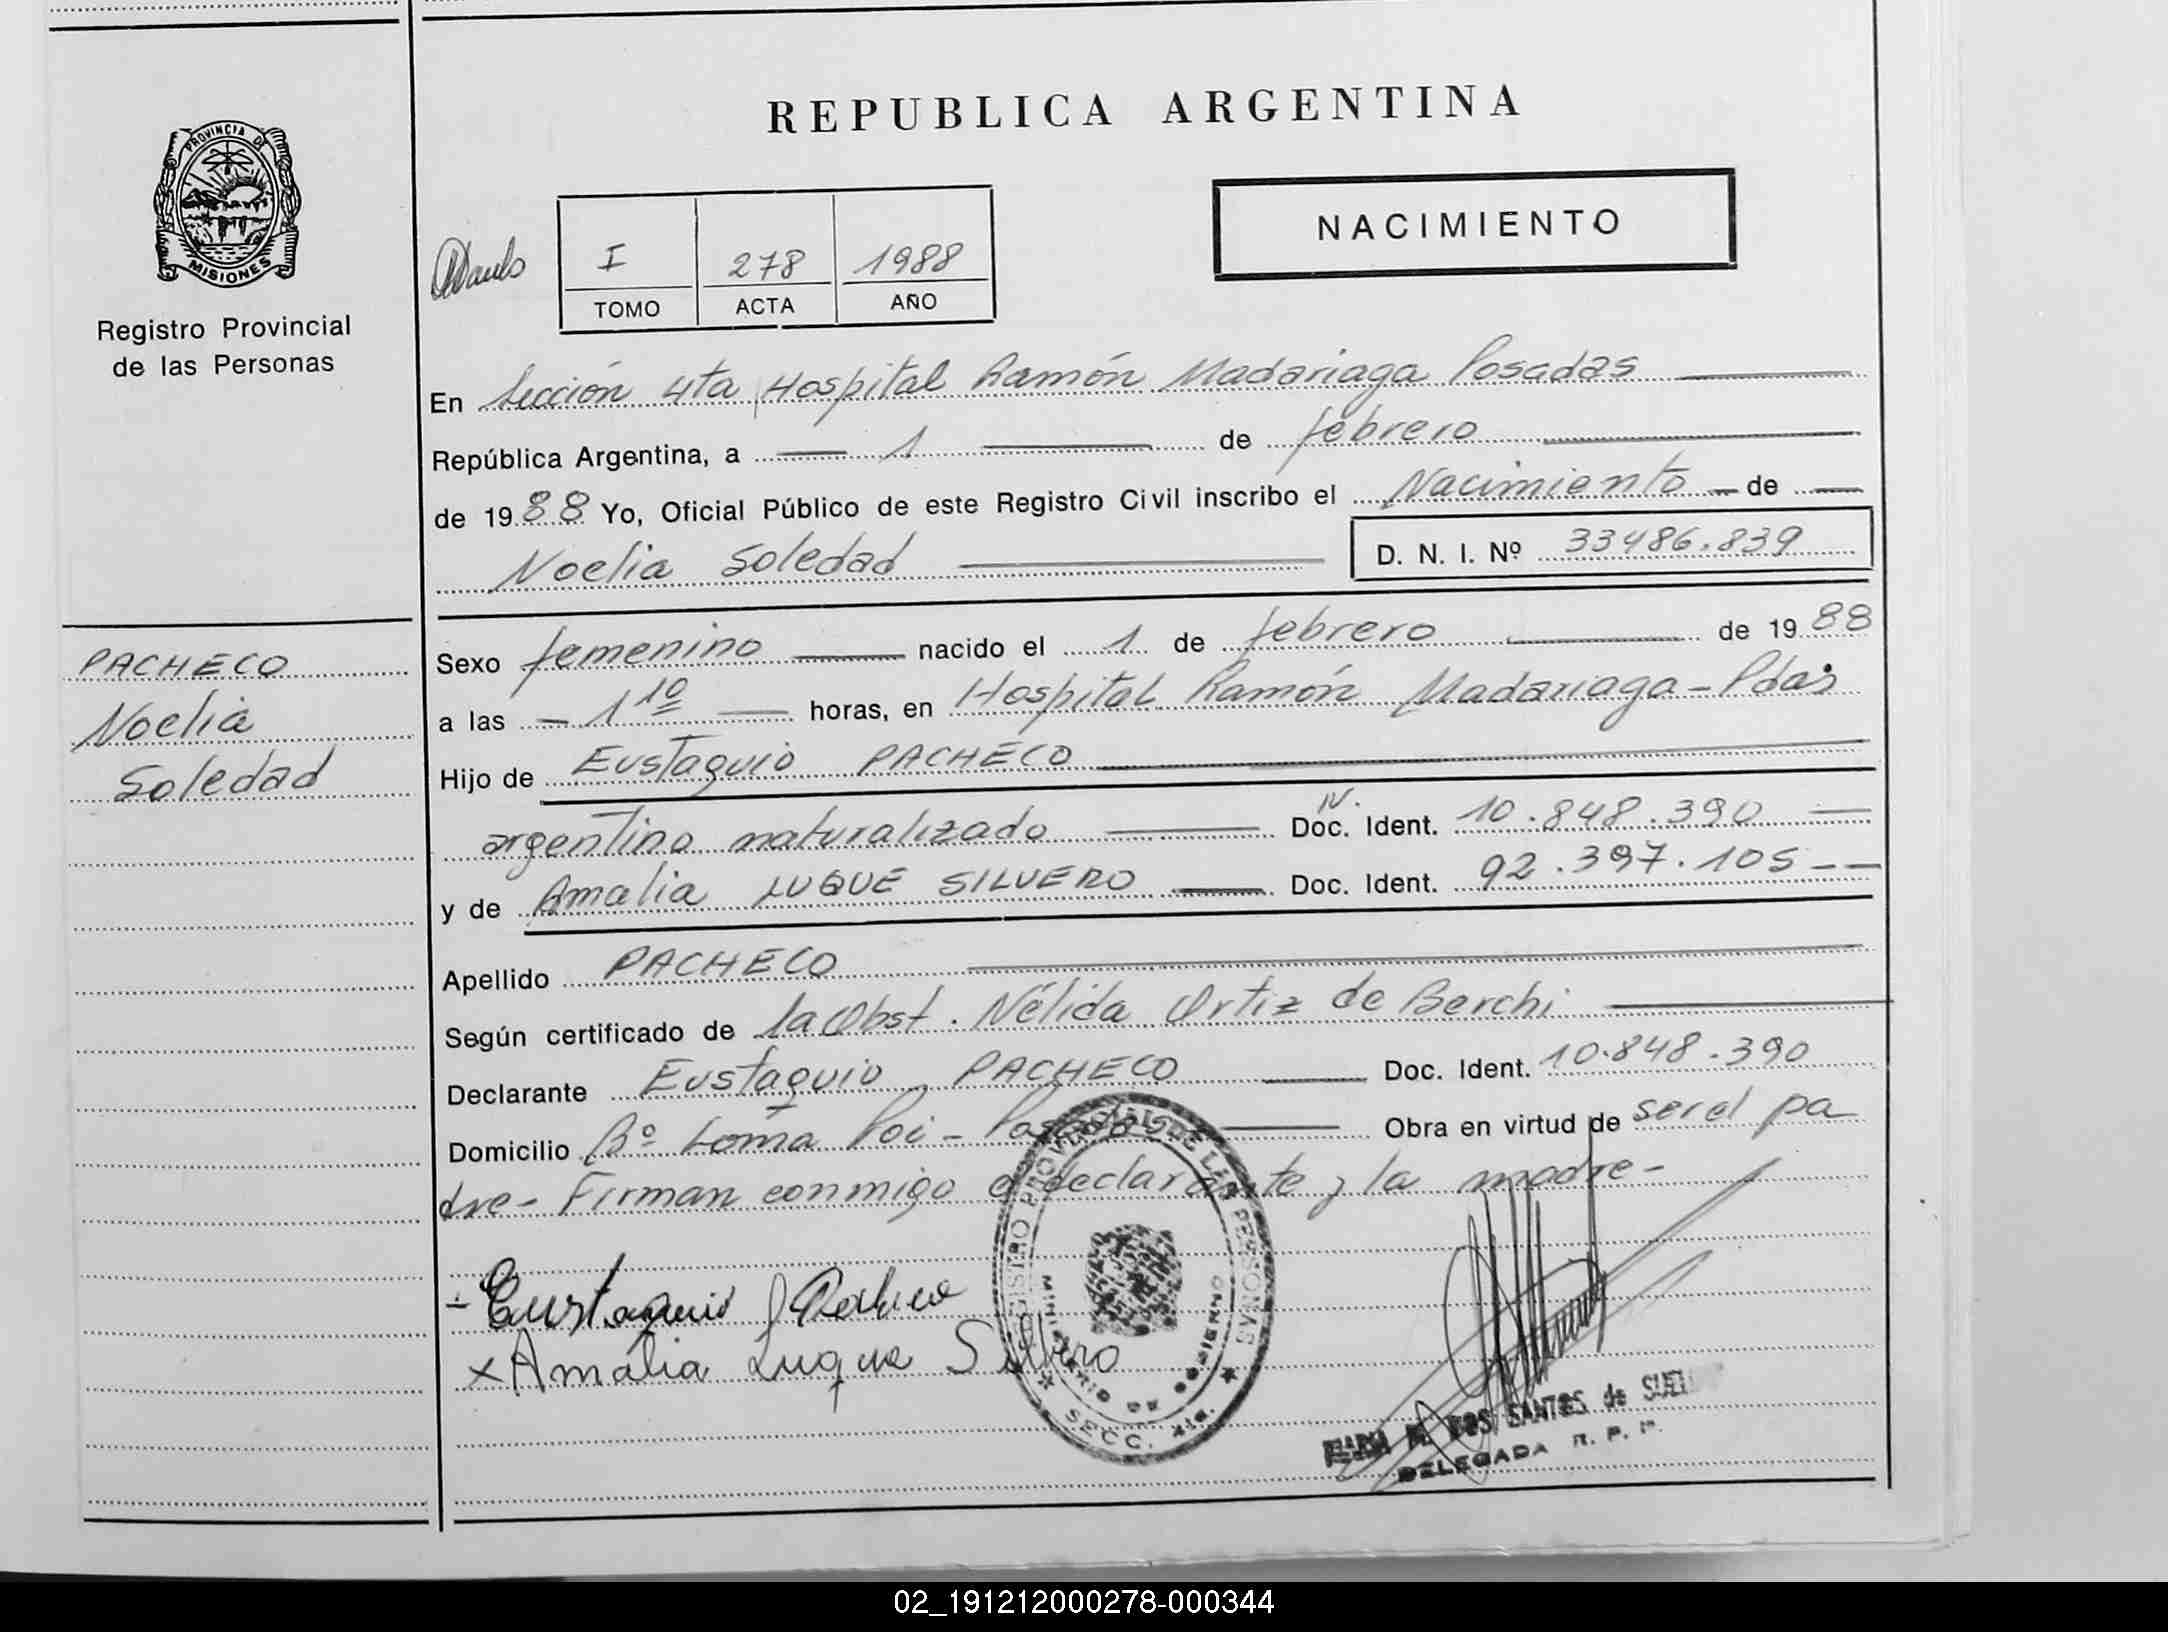 REPUBLICA ARGENTINA
PROVINCIA DE
MISIONES
Registro Provincial
de las Personas
NACIMIENTO
I 278 1988
TOMO ACTA AÑO
En Sección 4ta Hospital Ramón Madariaga Posadas
República Argentina, a 1 de febrero
de 1988 Yo, Oficial Público de este Registro Civil inscribo el Nacimiento de
Noelia Soledad D. N. I. Nº 33486.839
PACHECO
Noelia
Soledad
Sexo femenino nacido el 1 de febrero de 1988
a las 1 10 horas, en Hospital Ramón Madariaga - Pdas
Hijo de Eustaquio PACHECO
argentino naturalizado Doc. Ident. 10.848.390
y de Amalia LUQUE SILVERO Doc. Ident. 92.397.105
Apellido PACHECO
Según certificado de la Obst. Nélida Ortiz de Berchi
Declarante Eustaquio PACHECO Doc. Ident. 10.848.390
Domicilio Bº Loma Poi - Posadas Obra en virtud de ser el pa
dre - Firman conmigo el declarante y la madre -
- Eustaquio Pacheco
x Amalia Luque Silvero
REGISTRO PROVINCIAL DE LAS PERSONAS
MINISTERIO DE GOBIERNO
SECC. 4ta.
DOS SANTOS de
DELEGADA R. P. P.
02_191212000278-000344